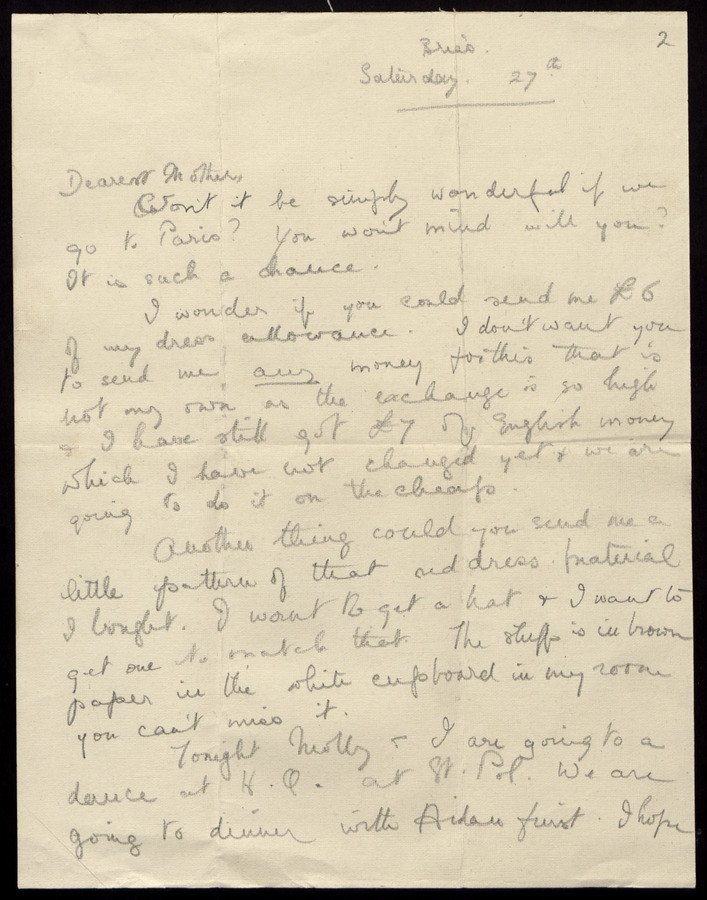 2
Brias.
Saturday. 27th
Dearest Mother,
Won't it be simply wonderful if we
go to Paris? You won't mind will you?
It is such a chance.
I wonder if you could send me £6
of my dress allowance. I don't want you
to send me any money for this that is
not my own as the exchange is so high
& I have still got £7 of English money
which I have not changed yet & we are
going to do it on the cheap.
Another thing could you send me a
little pattern of that red dress material
I bought. I want to get a hat & I want to
get one to match that. The stuff is in brown
paper in the white cupboard in my room
you can't miss it.
Tonight Molly & I are going to a
dance at H.Q. at St. Pol. We are
going to dinner with Aidan first. I hope